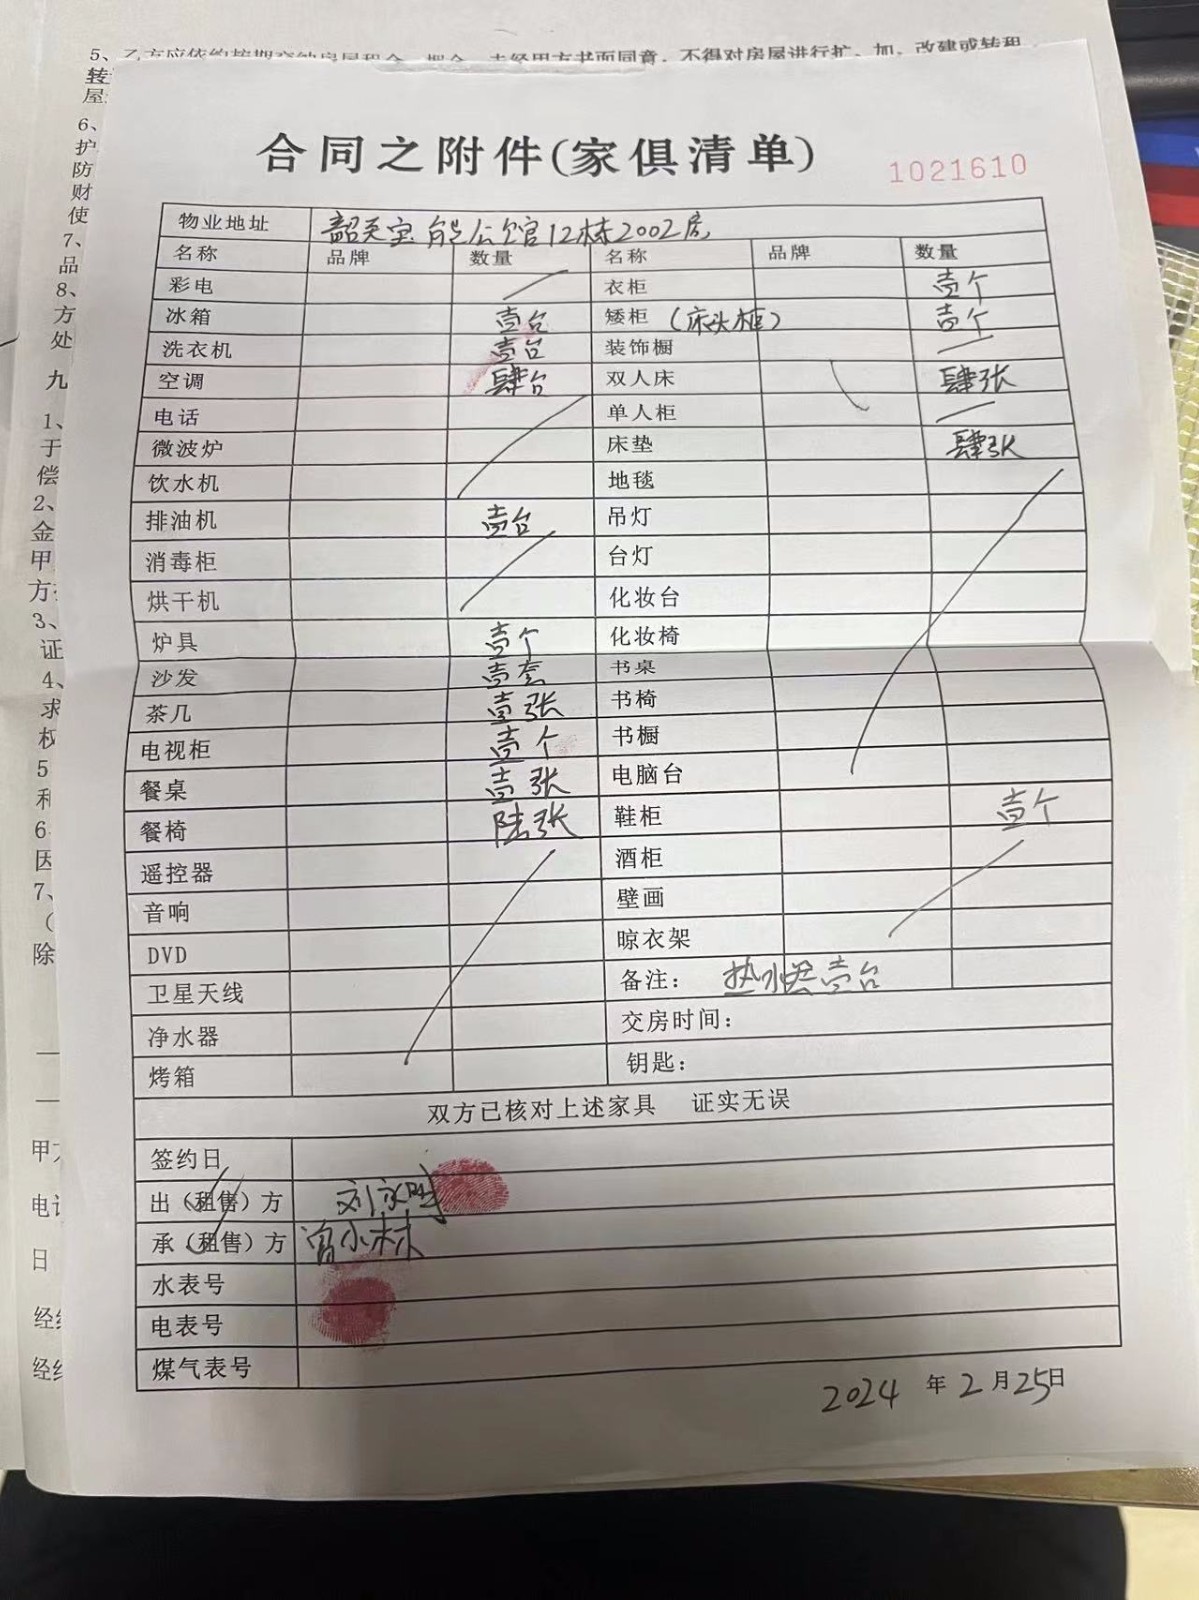 5、乙方应依约按期交纳房屋租金、押金、未经甲方书面同意,不得对房屋进行扩、加、改建或转租
转
屋
6、
护
防
财
使
7、
品
8、
方
处
九
1、
于
偿
2、
金
甲
方
3、
证
4、
求
权
5
和
6
因
7、
(
除
甲方
电话
日
经
经
合同之附件(家俱清单)
1021610
物业地址 公馆12栋2002房
名称 品牌 数量 名称 品牌 数量
彩电 衣柜 壹个
冰箱 壹台 矮柜 (床头柜) 壹个
洗衣机 壹台 装饰橱
空调 肆台 双人床 肆张
电话 单人柜
微波炉 床垫 肆张
饮水机 地毯
排油机 壹台 吊灯
消毒柜 台灯
烘干机 化妆台
炉具 壹个 化妆椅
沙发 壹套 书桌
茶几 壹张 书椅
电视柜 壹个 书橱
餐桌 壹张 电脑台
餐椅 陆张 鞋柜 壹个
遥控器 酒柜
音响 壁画
DVD 晾衣架
卫星天线 备注: 热水器壹台
净水器 交房时间:
烤箱 钥匙:
双方已核对上述家具 证实无误
签约日
出(租售)方 刘
承(租售)方 曾小林
水表号
电表号
煤气表号
2024 年 2 月 25日